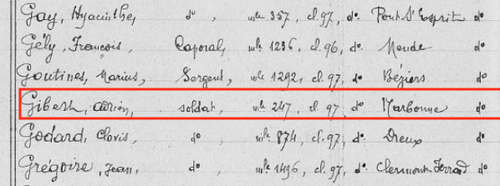 Gay, Hyacinthe, do, mle 357, cl. 97, do. Pont-St-Esprit
Gély, François, Caporal, mle 1236, cl. 96, do. Mende
Goutines, Marius, Sergent, mle 1292, cl. 97, do. Béziers
Gibert, soldat, mle 247, cl. 97, do. Narbonne
Godard, Clovis, do mle 874, cl. 97, do. Dreux
Grégoire, Jean, do mle 1496, cl. 97, do. Clermont-Ferrand